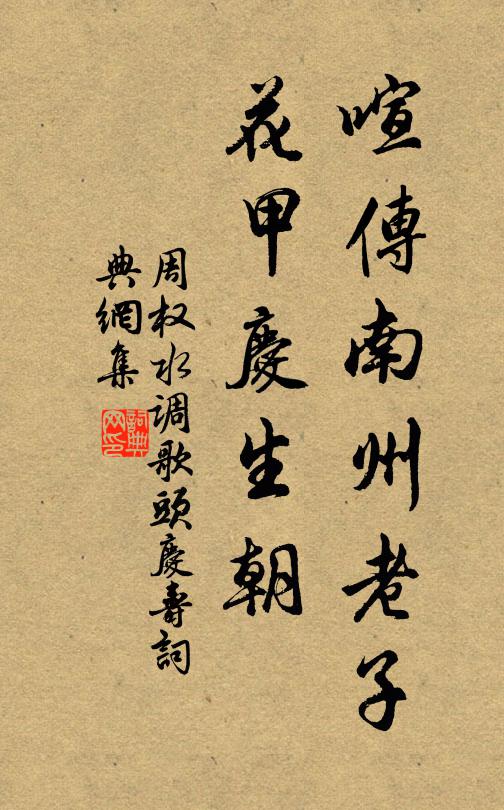 喧傳南州老子
花甲慶生朝
周权水调歌頭慶壽詞
典網集
詞典网印